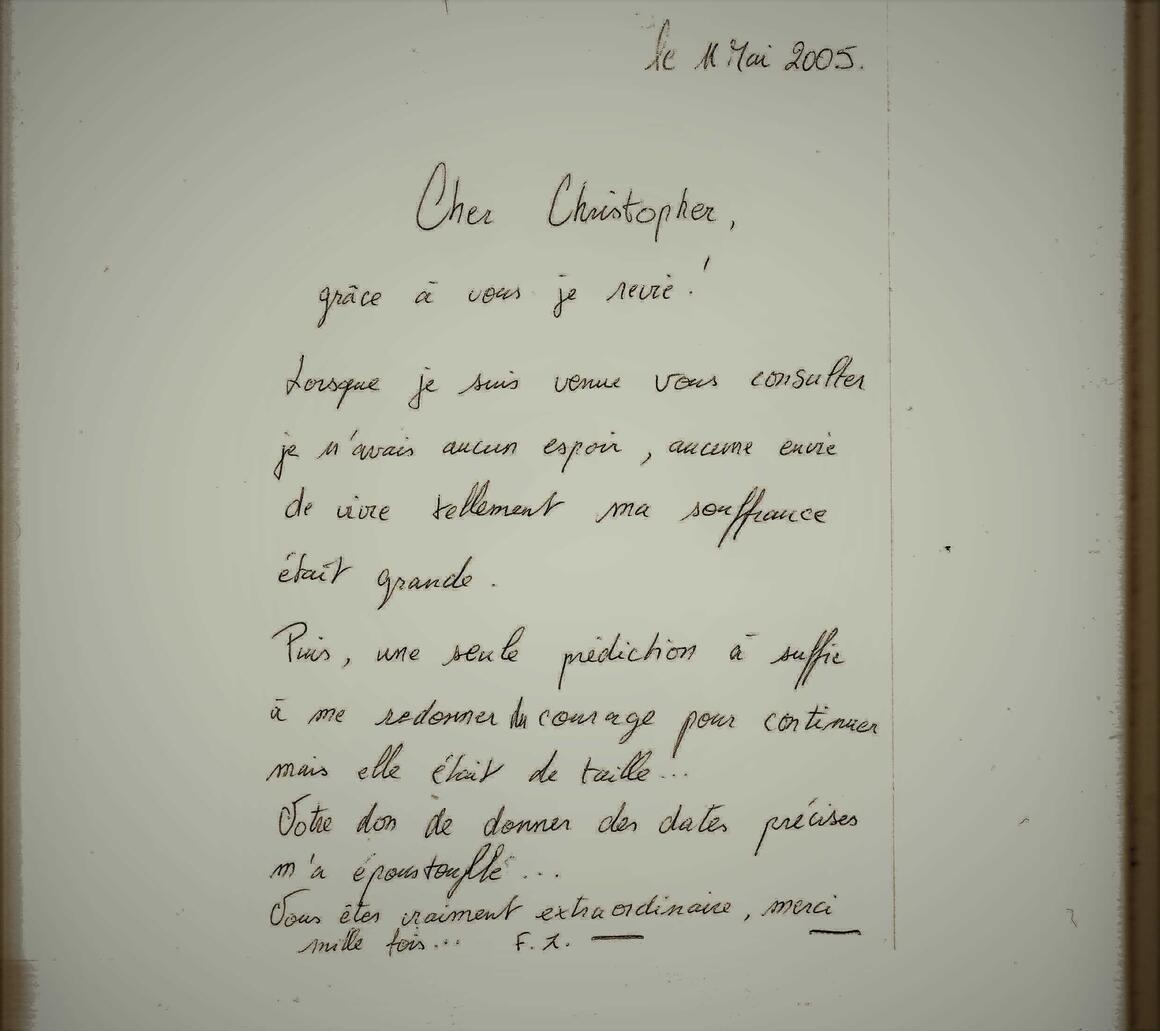 le 11 Mai 2005.
Cher Christopher,
grâce à vous je revie !
Lorsque je suis venue vous consulter
je n'avais aucun espoir, aucune envie
de vivre tellement ma souffrance
était grande.
Puis, une seule prédiction à suffie
à me redonner du courage pour continuer
mais elle était de taille...
Votre don de donner des dates précises
m'a époustouflé...
Vous êtes vraiment extraordinaire, merci
mille fois... F.